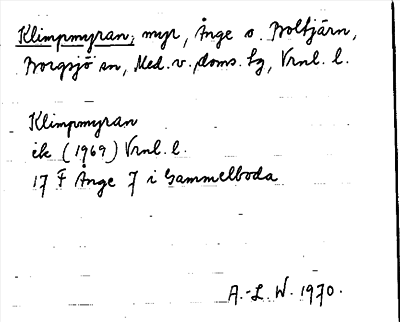 Klimpmyran, myr, Ånge o. Boltjärn,
Borgsjö sn, Med. v. doms. lg, Vrnl. l.
Klimpmyran
ek (1969) Vrnl. l.
17 F Ånge 7 i Gammelboda
A.-L. W. 1970.